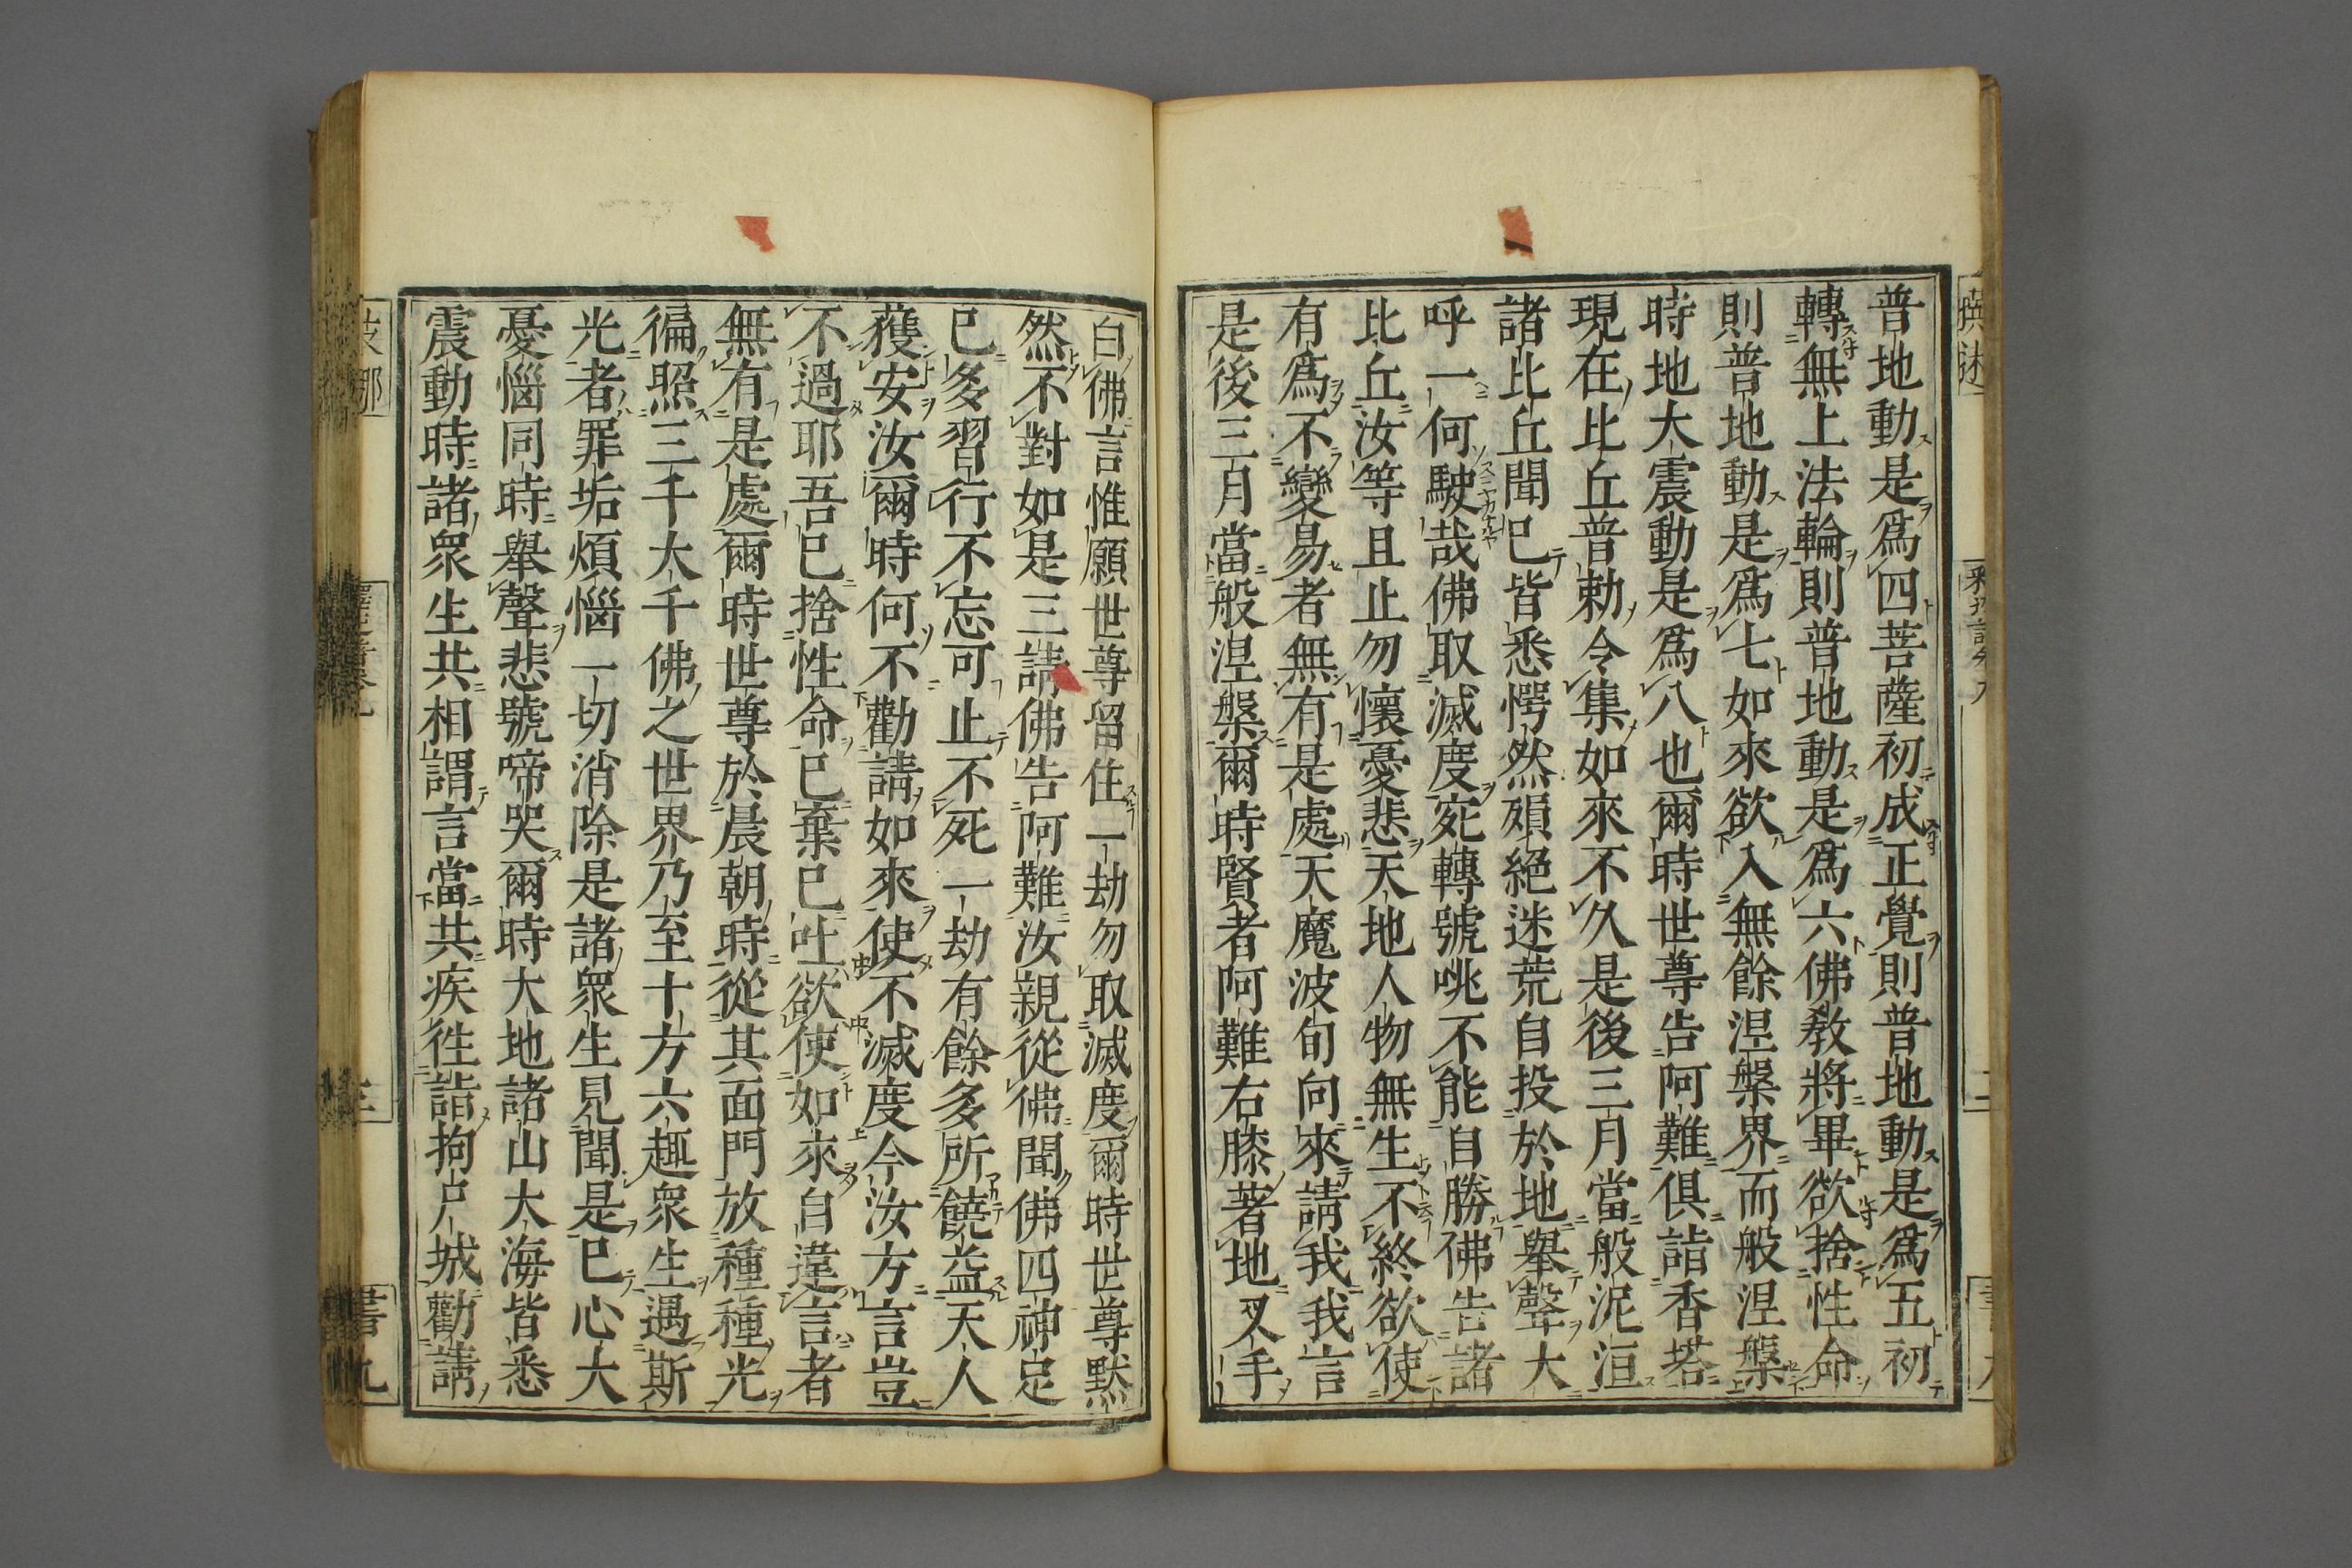 普地動是爲四菩薩初成正覺則普地動是爲五初
轉無上法輪則普地動是爲六佛敎將畢欲捨性命
則普地動是爲七如來欲入無餘涅槃界而般涅槃
時地大震動是爲八也爾時世尊告阿難俱詣香塔
現在比丘普勅令集如來不久是後三月當般泥洹
諸比丘聞已皆悉愕然殞絕迷荒自投於地舉聲大
呼一何駛哉佛取滅度宛轉號咷不能自勝佛告諸
比丘汝等且止勿懷憂悲天地人物無生不終欲使
有爲不變易者無有是處天魔波旬向來請我我言
是後三月當般涅槃爾時賢者阿難右膝著地叉手
白佛言惟願世尊留住一劫勿取滅度爾時世尊默
然不對如是三請佛告阿難汝親從佛聞佛四神足
已多習行不忘可止不死一劫有餘多所饒益天人
獲安汝爾時何不勸請如來使不滅度今汝方言豈
不過耶吾已捨性命已棄已吐欲使如來自違言者
無有是處爾時世尊於晨朝時從其面門放種種光
徧照三千大千佛之世界乃至十方六趣衆生遇斯
光者罪垢煩惱一切消除是諸衆生見聞是已心大
憂惱同時舉聲悲號啼哭爾時大地諸山大海皆悉
震動時諸衆生共相謂言當共疾往詣拘尸城勸請